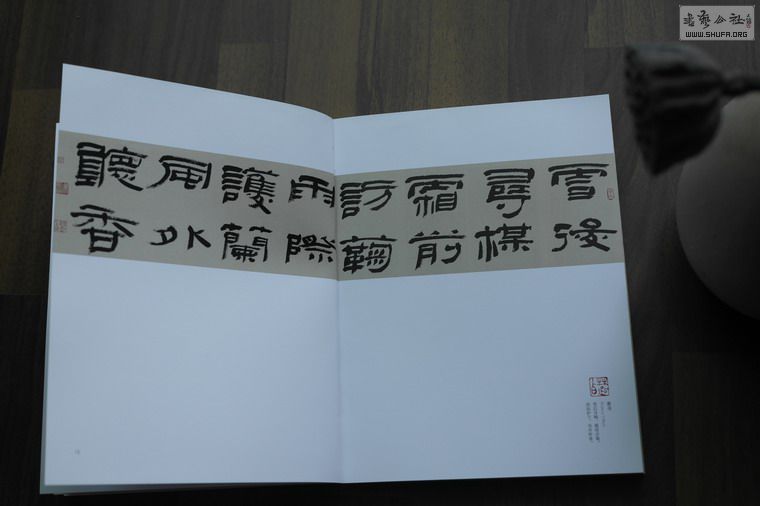 雪後
尋楳
霜前
訪鞠
雨際
護蘭
風外
聽香
書藝公社
WWW.SHUFA.ORG